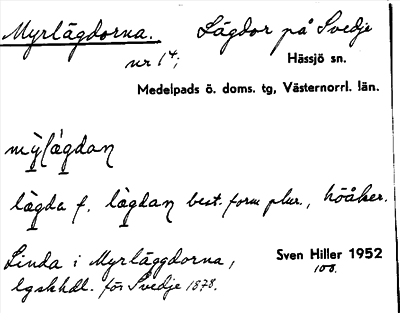 Myrlägdorna. Lägdor på Svedje
nr 14; Hässjö sn.
Medelpads ö. doms. tg, Västernorrl. län.
mỳlägdaɳ
lägda f. lägdaɳ best. form plur., höåker.
Linda i Myrläggdorna, Sven Hiller 1952
lgskhdl. för Svedje 1878. 108.